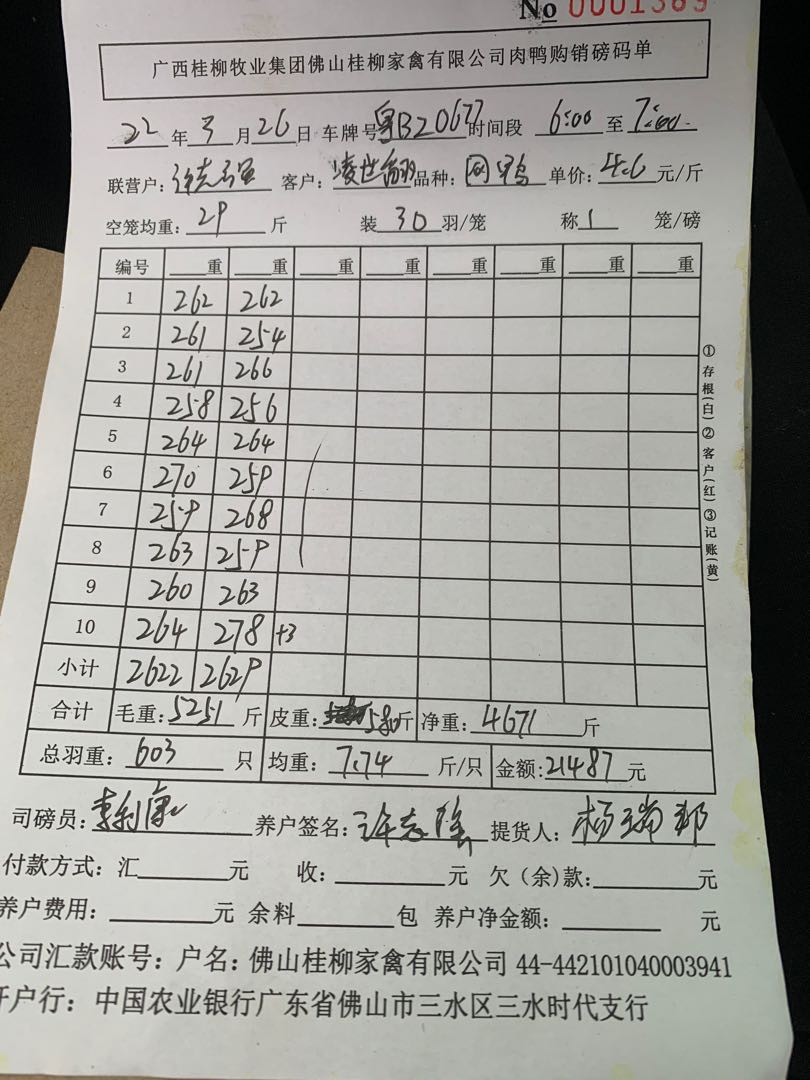 No 0001389
广西桂柳牧业集团佛山桂柳家禽有限公司肉鸭购销磅码单
22年3月26日 车牌号粤B20677时间段 6:00 至 7:00
联营户: 客户: 品种: 单价:4.6元/斤
空笼均重:29斤 装30羽/笼 称1笼/磅
编号 重 重 重 重 重 重 重 重
1 262 262
2 261 254
3 261 266
4 258 256
5 264 264
6 270 259
7 259 268
8 263 259
9 260 263
10 264 278 +3
小计 2622 2629
合计 毛重:5251斤 皮重:580斤 净重:4671斤
总羽重:603只 均重:7.74斤/只 金额:21487元
司磅员: 养户签名: 提货人:杨瑞邦
付款方式:汇元 收:元 欠(余)款:元
养户费用:元 余料包 养户净金额:元
公司汇款账号:户名:佛山桂柳家禽有限公司 44-442101040003941
开户行:中国农业银行广东省佛山市三水区三水时代支行
①存根(白)②客户(红)③记账(黄)